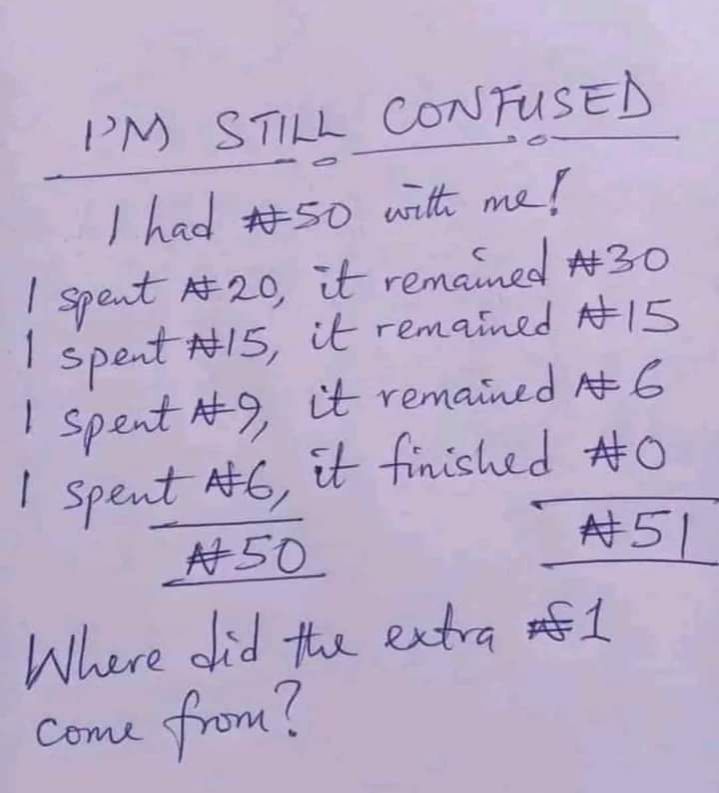 I'M STILL CONFUSED
I had ₦50 with me!
I spent ₦20, it remained ₦30
I spent ₦15, it remained ₦15
I spent ₦9, it remained ₦6
I spent ₦6, it finished ₦0
₦50 ₦51
Where did the extra ₦1
come from?